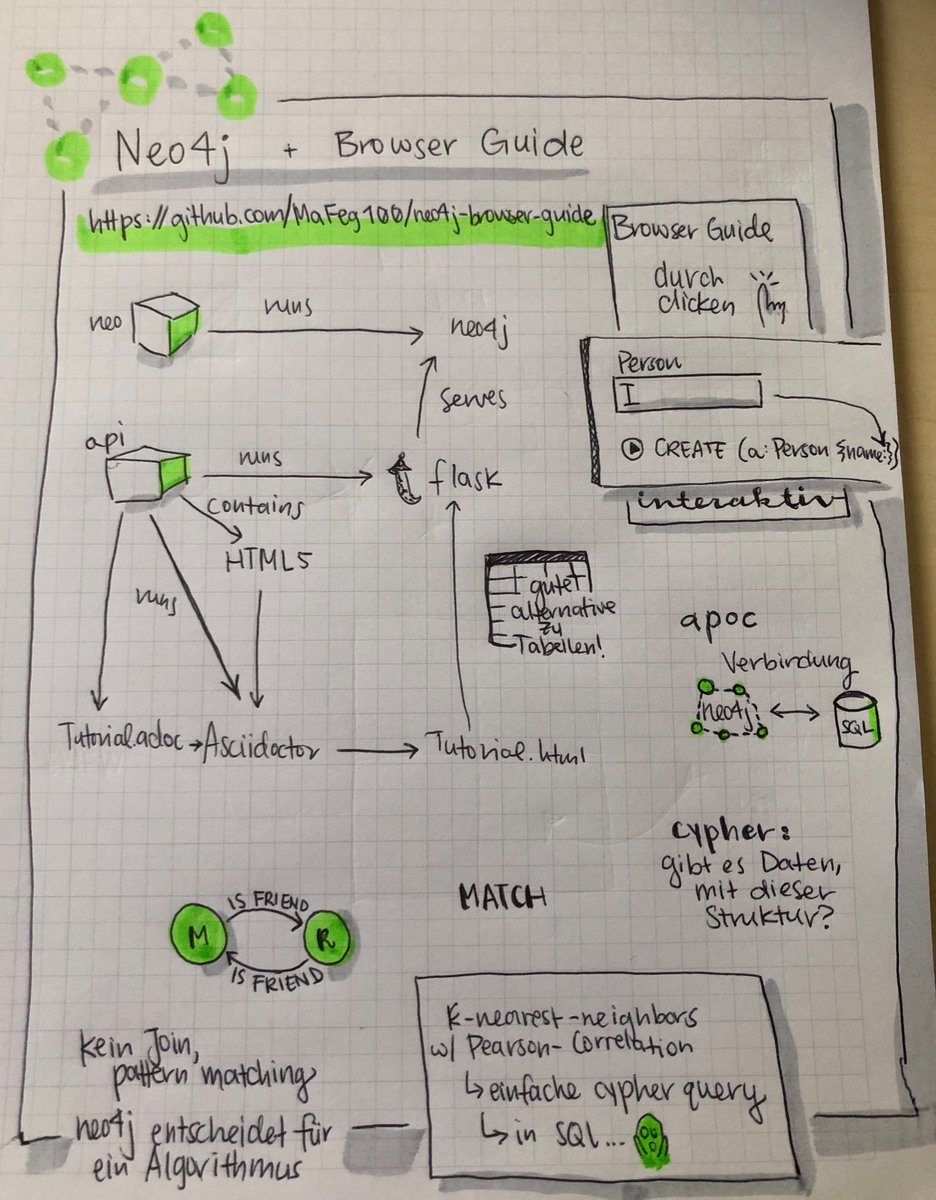 Neo4j + Browser Guide
https://github.com/MaFeg100/neo4j-browser-guide
Browser Guide
durch
clicken
neo
runs
neo4j
serves
Person
I
CREATE (a:Person {name:})
interaktiv
api
runs
flask
contains
HTML5
runs
gute
alternative
zu
Tabellen!
apoc
Verbindung
neo4j
SQL
Tutorial.adoc
Asciidoctor
Tutorial.html
cypher:
gibt es Daten,
mit dieser
Struktur?
MATCH
IS FRIEND
M
R
IS FRIEND
kein Join,
pattern matching
neo4j entscheidet für
ein Algorithmus
K-nearest-neighbors
w/ Pearson-Correlation
↳ einfache cypher query
↳ in SQL...